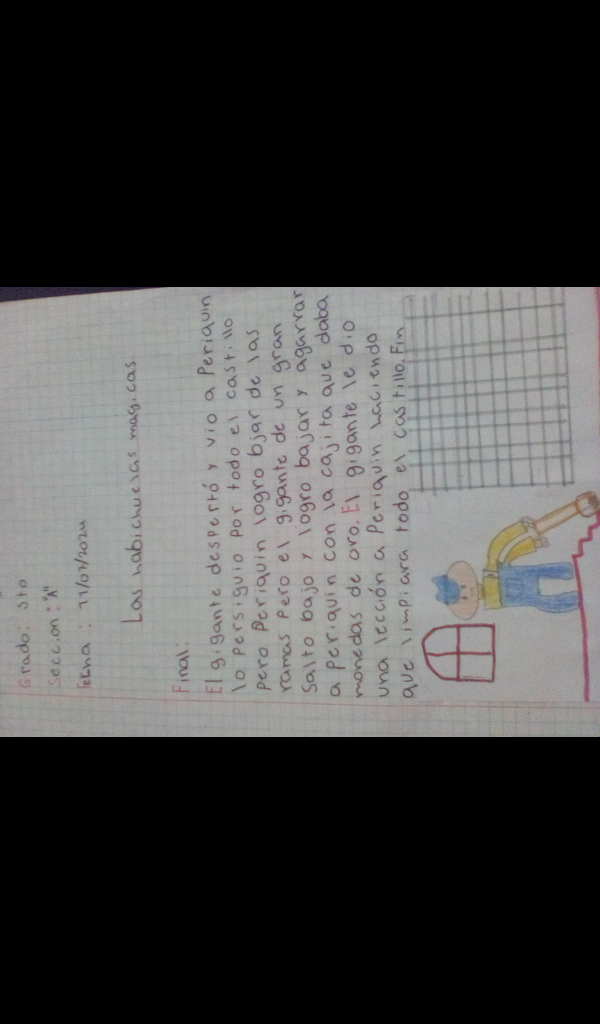 Grado: 5to
Sección: "A"
Fecha: 11/07/2024
Las habichuelas magicas
Final:
El gigante despertó y vio a Periquin
lo persiguio por todo el castillo
pero Periquin logro bjar de las
ramas pero el gigante de un gran
Salto bajo y logro bajar y agarrar
a periquin con la cajita que daba
monedas de oro. El gigante le dio
una lección a Periquin haciendo
que limpiara todo el castillo. Fin